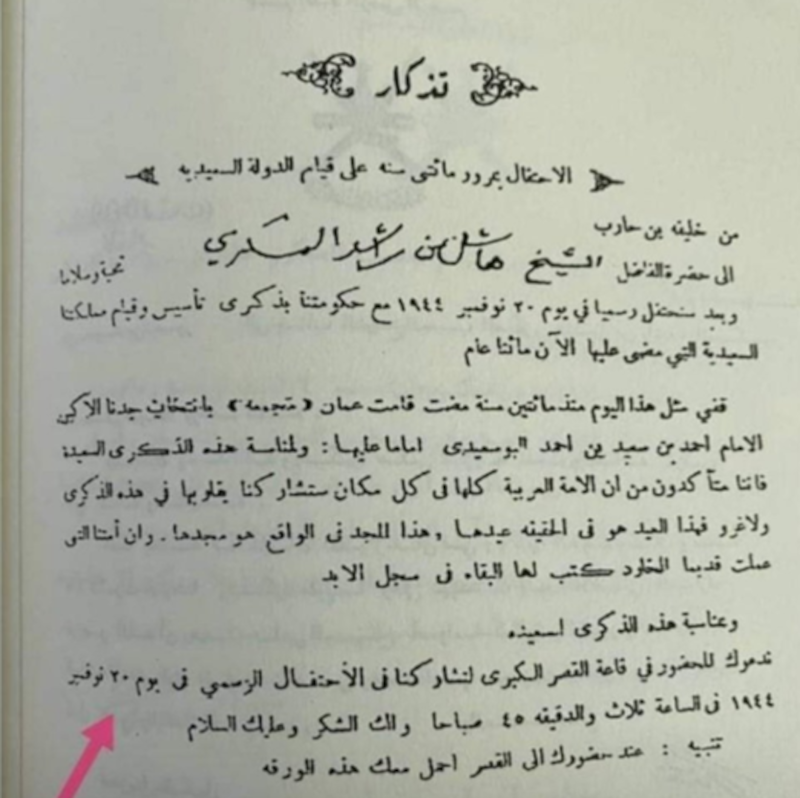 تذكار
الاحتفال بمرور مائتى سنه على قيام الدولة السعيديه
من خليفه بن حارب
الى حضرة الفاضل الشيخ هاشل بن راشد المسكري تحية وسلاما
وبعد سنحتفل رسميا في يوم ٢٠ نوفمبر ١٩٤٤ مع حكومتنا بذكرى تأسيس وقيام مملكتنا
السعيدية التي مضى عليها الآن مائتا عام
ففي مثل هذا اليوم منذ مائتين سنة مضت قامت عمان (متجمعه) بانتخاب جدنا الاكبر
الامام احمد بن سعيد بن احمد البوسعيدى اماما عليها : ولمناسبة هذه الذكرى السعيدة
فاننا متأكدون من ان الامة العربية كلها فى كل مكان ستشاركنا بقلوبها في هذه الذكرى
ولاغرو فهذا العيد هو فى الحقيقه عيدها , هذا المجد فى الواقع هو مجدها . وان أمتنا التى
عملت قديما الخلود كتب لها البقاء فى سجل الابد
وبمناسبة هذه الذكرى السعيده
ندعوك للحضور في قاعة القصر الكبرى لتشاركنا فى الأحتفال الرسمي فى يوم ٢٠ نوفمبر
١٩٤٤ فى الساعة ثلاث والدقيقه ٤٥ صباحا ولك الشكر وعليك السلام
تنبيه : عند حضورك الى القصر احمل معك هذه الورقه